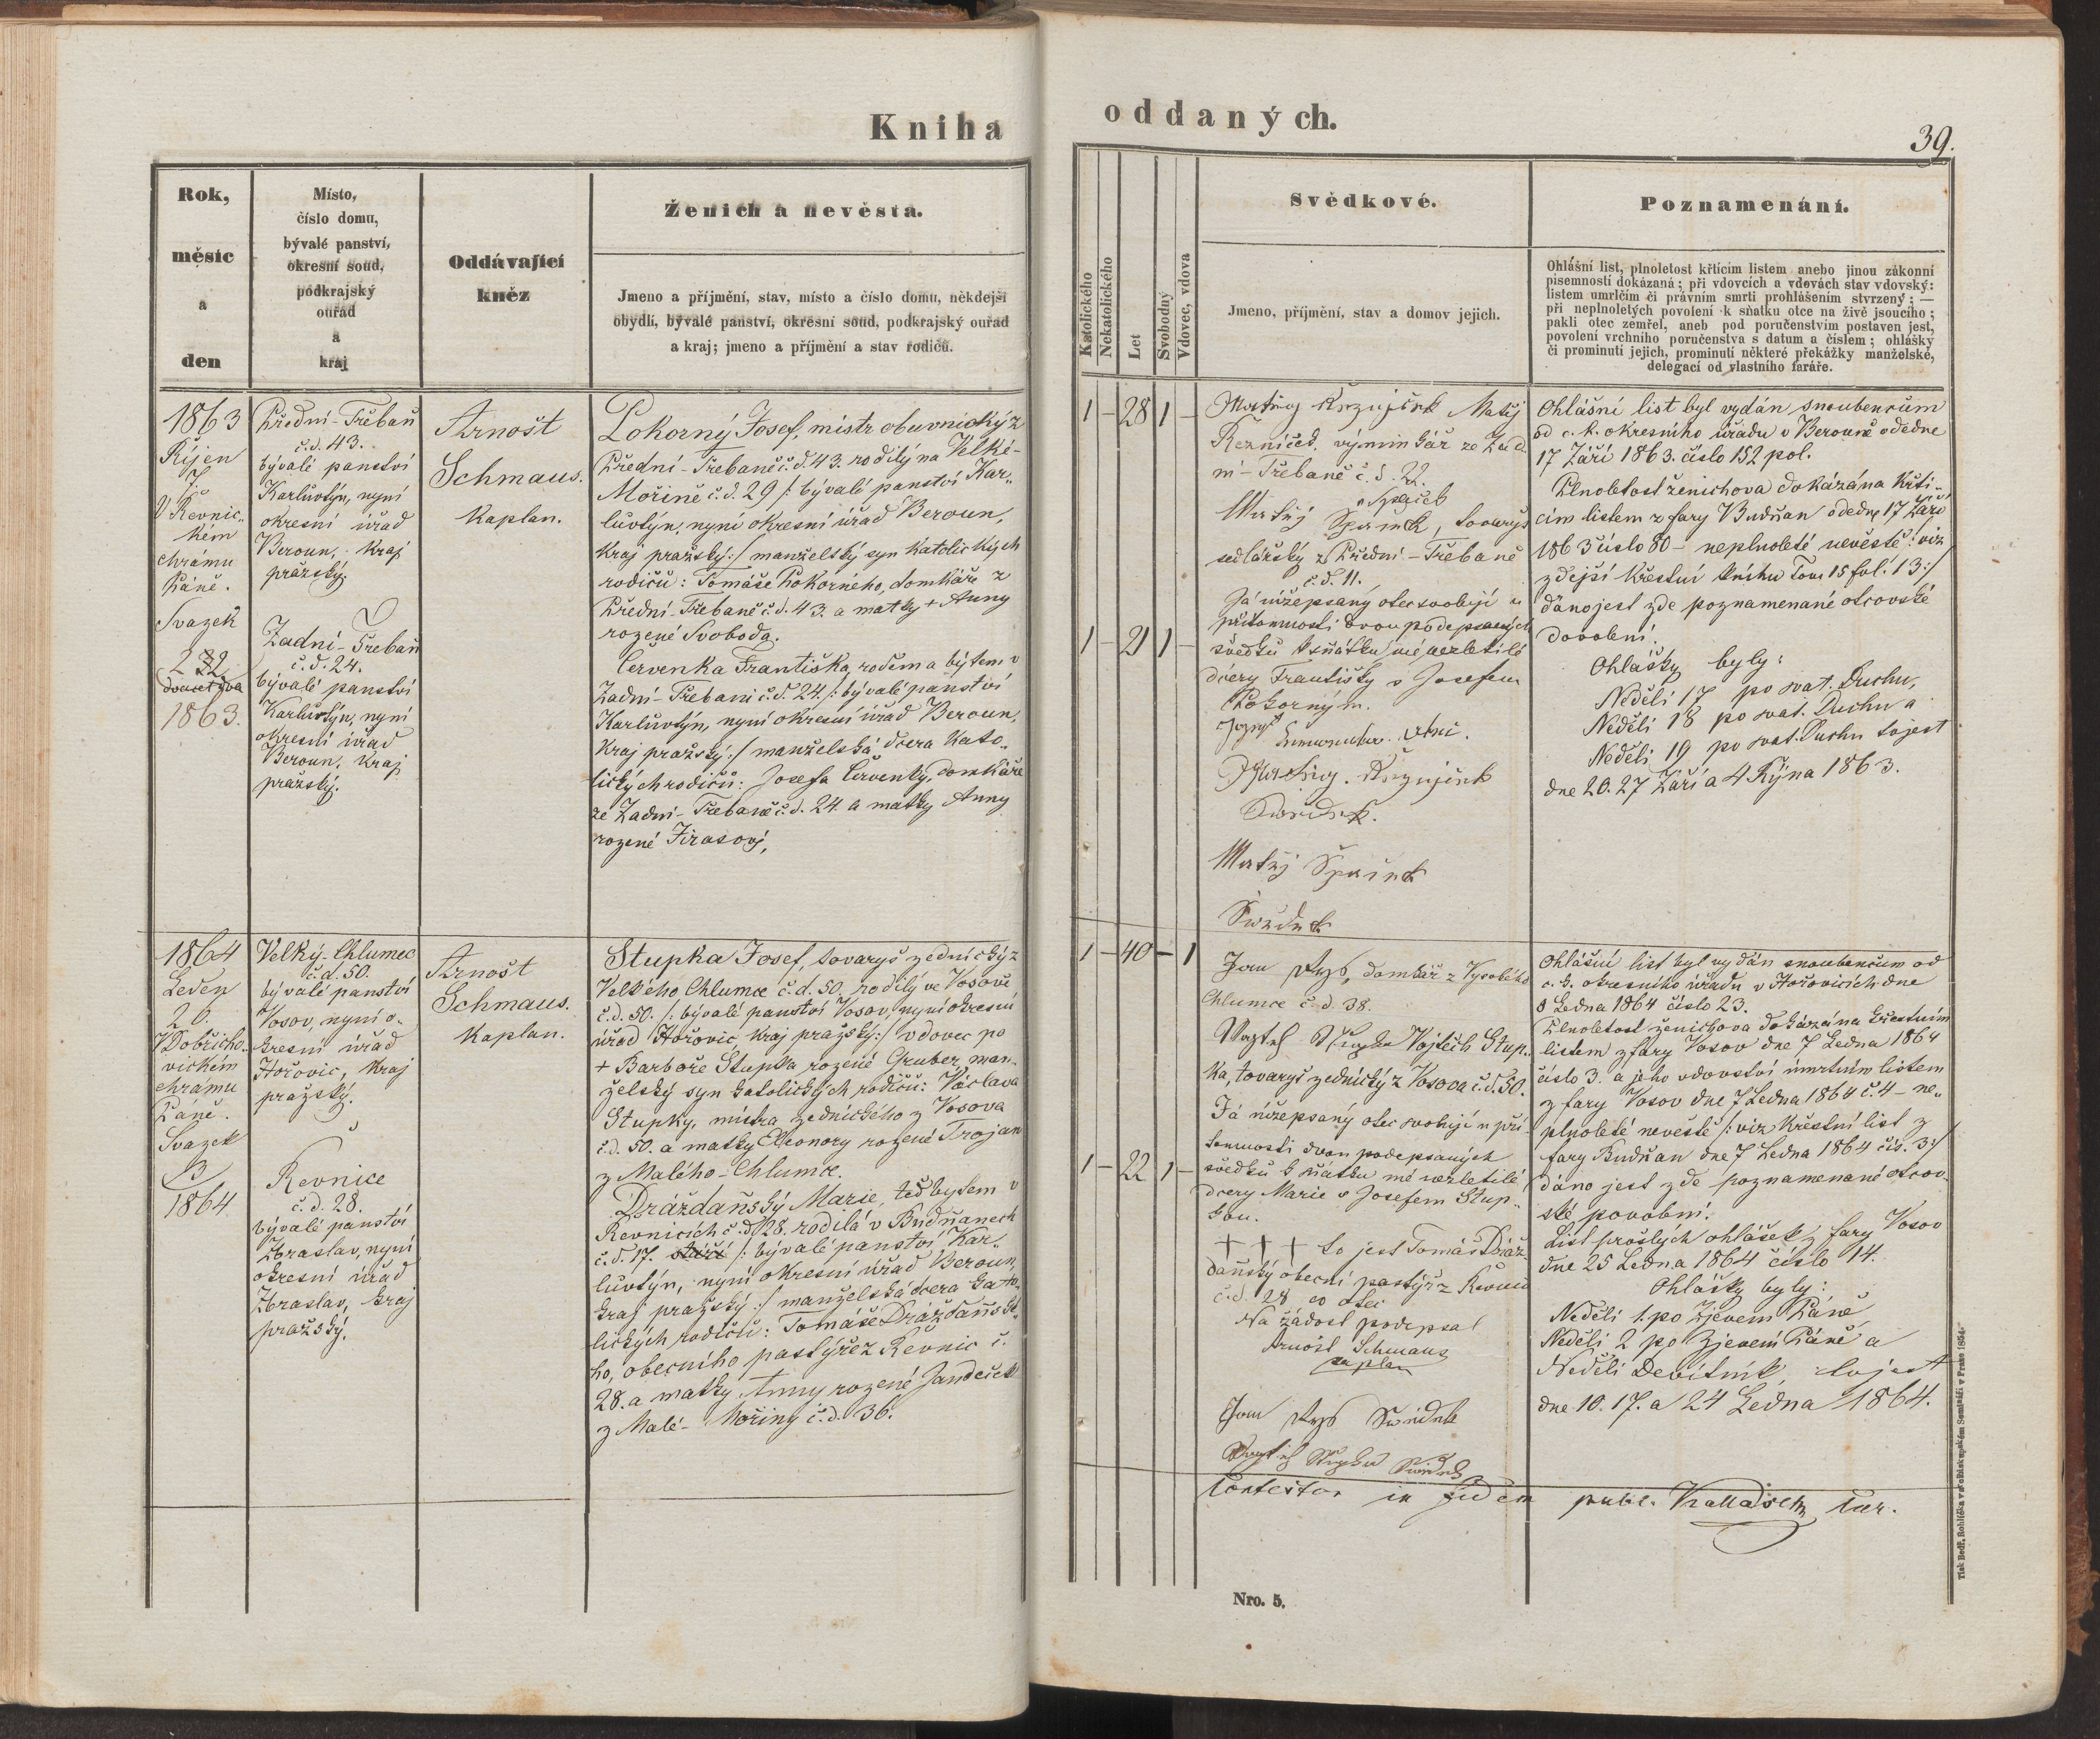 Kniha
oddaných.
39.
Rok,
měsíc
a
den
Místo,
číslo domu,
bývalé panství,
okresní soud,
podkrajský
ouřad
a
kraj
Oddávající
kněz
Ženich a nevěsta.
Jmeno a příjmění, stav, místo a číslo domu, někdejší
obydlí, bývalé panství, okresní soud, podkrajský ouřad
a kraj; jmeno a příjmění a stav rodičů.
Katolického
Nekatolického
Let
Svobodný
Vdovec, vdova
Svědkové.
Jmeno, příjmění, stav a domov jejich.
Poznamenání.
Ohlášní list, plnoletost křtícím listem anebo jinou zákonní
písemností dokázaná; při vdovcích a vdovách stav vdovský:
listem umrlčím či právním smrti prohlášením stvrzený; —
při neplnoletých povolení k sňatku otce na živě jsoucího;
pakli otec zemřel, aneb pod poručenstvím postaven jest,
povolení vrchního poručenstva s datum a číslem; ohlášky
či prominutí jejich, prominutí některé překážky manželské,
delegací od vlastního faráře.
1863
Říjen
7.
V Řevnic„
kém
chrámu
Páně.
Svazek
1863.
Přední-Třebaň
č.d. 43.
bývalé panství
Karlůvtýn, nyní
okresní úřad
Beroun, Kraj
pražský.
Zadní-Třebaň
č.d. 24.
bývalé panství
Karlůvtýn, nyní
okresní úřad
Beroun, Kraj
pražský.
Arnošt
Schmaus.
Kaplan.
Pokorný Josef, mistr obuvnický z
Přední-Třebaně č.d. 43. rodilý na Velké-
Mořině č.d. 29 /: bývalé panství Kar„
lůvtýn, nyní okresní úřad Beroun,
Kraj pražský :/ manželský syn katolických
rodičů: Tomáše Pokorného, domkáře z
Přední-Třebaně č.d. 43. a matky + Anny
rozené Svoboda.
Červenka Františka, rodem a bytem v
Zadní-Třebani č.d. 24. /: bývalé panství
Karlůvtýn, nyní okresní úřad Beroun,
Kraj pražský :/ manželská dcera kato„
lických rodičů: Josefa Červenky, domkáře
ze Zadní-Třebaně č.d. 24. a matky Anny
rozené Jirasový,
1 – 28 1 –
1 – 21 1 –
Matěj
výminkář ze Zad
ní-Třebaně č.d. 22.
Matěj Špaček, tovaryš
sedlářský z Přední-Třebaně
č.d. 11.
Já nížepsaný otec svoluji u
přítomnosti dvou podepsaných
svědků k sňátku mé nezletilé
dcery Františky s Josefem
Pokorným.
Matěj
Svědek.
Matěj Špaček
Svědek
Ohlášní list byl vydán snoubencům
od c. k. okresního úřadu v Berouně ode dne
17 Září 1863. číslo 152 pol.
Plnoletost ženichova dokázána křtí„
cím listem z fary Budňan ode dne 17 Září
1863 číslo 80 – neplnoleté nevěstě /: viz
zdejší křestní knihu Tom 15 fol. 13 :/
dáno jest zde poznamenané otcovské
dovolení.
Ohlášky byly:
Neděli 17 po svat. Duchu,
Neděli 18 po svat. Duchu a
Neděli 19 po svat. Duchu to jest
dne 20. 27 Září a 4 Října 1863.
1864
Leden
26.
V Dobřicho„
vickém
chrámu
Páně.
Svazek
3
1864
Velký-Chlumec
č.d. 50.
bývalé panství
Vosov, nyní o„
kresní úřad
Hořovic, Kraj
pražský.
Řevnice
č.d. 28.
bývalé panství
Zbraslav, nyní
okresní úřad
Zbraslav, kraj
pražský.
Arnošt
Schmaus.
Kaplan.
Stupka Josef, tovaryš zednický z
Velkého Chlumce č.d. 50. rodilý ve Vosově
č.d. 50. /: bývalé panství Vosov, nyní okresní
úřad Hořovic, Kraj pražský :/ vdovec po
+ Barboře Stupka rozené Gruber, man„
želský syn katolických rodičů: Václava
Stupky, mistra zednického z Vosova
č.d. 50. a matky Eleonory rozené Trojan
z Malého-Chlumce.
Drážďanský Marie, teď bytem v
Řevnicích č.d. 28. rodilá v Budňanech
č.d. 17. /: bývalé panství Kar„
lůvtýn, nyní okresní úřad Beroun,
kraj pražský :/ manželská dcera kato„
lických rodičů: Tomáše Drážďanské„
ho, obecního pastýře z Řevnic č.
28. a matky Anny rozené Jandeček
z Malé-Mořiny č.d. 36.
1 – 40 – 1
1 – 22 1 –
Jan domkář z Vysokého
Chlumce č.d. 38.
Vojtěch Stup„
ka, tovaryš zednický z Vosova č.d. 50.
Já nížepsaný otec svoluji u pří„
tomnosti dvou podepsaných
svědků k sňátku mé nezletilé
dcery Marie s Josefem Stup„
kou.
+ + + to jest Tomáš Dráž„
danský obecní pastýř z Řevnic
č.d. 28 co otec
Na žádost podepsal
Arnošt Schmaus
kaplan
Jan Svědek
Svědek
Ohlášní list byl vydán snoubencům od
c. k. okresního úřadu v Hořovicích dne
8 Ledna 1864 číslo 23.
Plnoletost ženichova dokázána křestním
listem z fary Vosov dne 7 Ledna 1864
číslo 3. a jeho vdovství úmrtním listem
z fary Vosov dne 7 Ledna 1864 č. 4 – ne„
plnoleté nevěstě /: viz křestní list z
fary Budňan dne 7 Ledna 1864 čís. 3 :/
dáno jest zde poznamenané otcov„
ské povolení.
List prošlých ohlášek z fary Vosov
dne 25 Ledna 1864 číslo 14.
Ohlášky byly:
Neděli 1. po Zjevení Páně,
Neděli 2 po Zjevení Páně a
Neděli Devítník, to jest
dne 10. 17. a 24 Ledna 1864.
Contestor in fidem publ.
Nro. 5.
Tisk Bedř. Rohlíčka v arcibiskupském Semináři v Praze 1854.